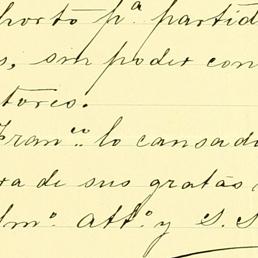 horto pª partid
s, sin poder con
tores.
Franco lo cansad
ra de sus gratas
mo. atto. y S. S